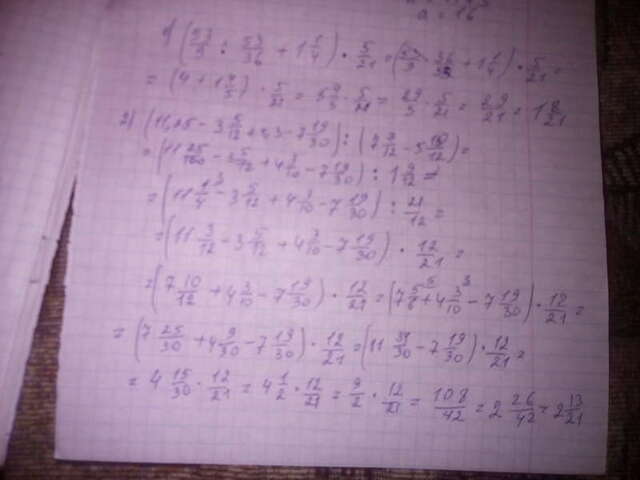 a = 16
1) (53/9 : 53/36 + 1 1/4) · 5/21 = (53/9 · 36/53 + 1 1/4) · 5/21 =
= (4 + 1 4/5) · 5/21 = 5 4/5 · 5/21 = 29/5 · 5/21 = 29/21 = 1 8/21
2) (11,25 - 3 5/12 + 4,3 - 7 19/30) : (7 2/12 - 5 /12) =
= (11 25/100 - 3 5/12 + 4 3/10 - 7 19/30) : 1 9/12 =
= (11 1/4 - 3 5/12 + 4 3/10 - 7 19/30) : 21/12 =
= (11 3/12 - 3 5/12 + 4 3/10 - 7 19/30) · 12/21 =
= (7 10/12 + 4 3/10 - 7 19/30) · 12/21 = (7 5/6 + 4 3/10 - 7 19/30) · 12/21 =
= (7 25/30 + 4 9/30 - 7 19/30) · 12/21 = (11 34/30 - 7 19/30) · 12/21 =
= 4 15/30 · 12/21 = 4 1/2 · 12/21 = 9/2 · 12/21 = 108/42 = 2 26/42 = 2 13/21